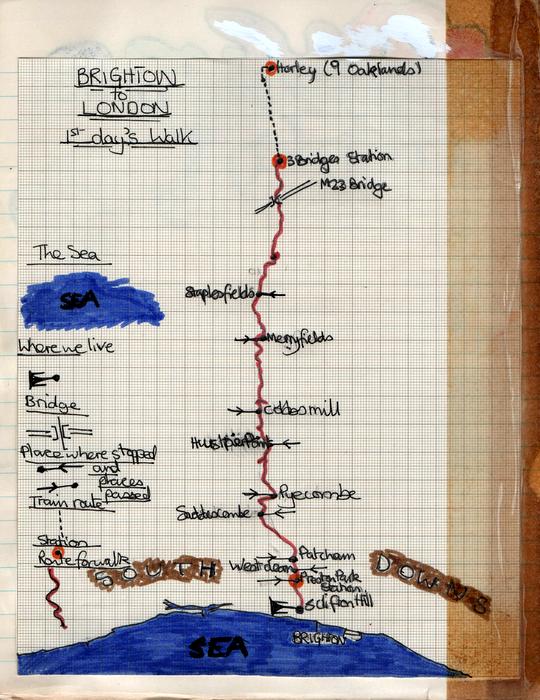 BRIGHTON
to
LONDON
1st day's Walk
Horley (9 Oaklands)
3 Bridges Station
M23 Bridge
The Sea
SEA
Staplesfields
Where we live
Merryfields
Bridge
Cobbs mill
Place where stopped
and
places
passed
Train route
Pyecombe
Saddlescombe
Station
Route for walk
SOUTH
DOWNS
Patcham
Westdean
Preston Park
Station
6 Clifton Hill
BRIGHTON
SEA